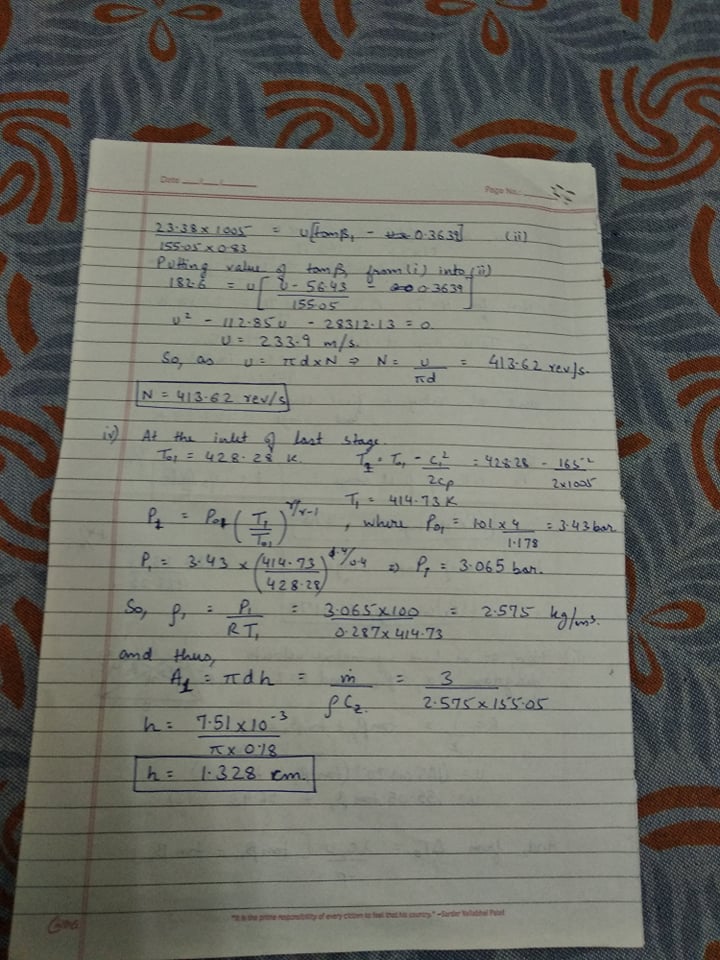 Date ___/___/______
Page No.:
23.38 x 1005 / 155.05 x 0.83 = U[tanβ1 - 0.3639] (ii)
Putting value of tanβ1 from (i) into (ii)
182.6 = U[(U - 56.43)/155.05 - 0.3639]
U² - 112.85U - 28312.13 = 0.
U = 233.9 m/s.
So, as U = πd x N ⇒ N = U/πd = 413.62 rev/s.
N = 413.62 rev/s
iv) At the inlet of last stage.
T01 = 428.28 K. T1 = T01 - C1²/2Cp = 428.28 - 165²/2x1005
T1 = 414.73 K
P1 = P01 (T1/T01)^γ/γ-1, where P01 = 101 x 4/1.178 = 3.43 bar
P1 = 3.43 x (414.73/428.28)^1.4/0.4 ⇒ P1 = 3.065 bar.
So, ρ1 = P1/RT1 = 3.065 x 100/0.287 x 414.73 = 2.575 kg/m3.
and thus,
A1 = πdh = ṁ/ρCz. = 3/2.575 x 155.05
h = 7.51 x 10^-3/π x 0.18
h = 1.328 cm.
"It is the prime responsibility of every citizen to feel that his country." –Sardar Vallabhai Patel